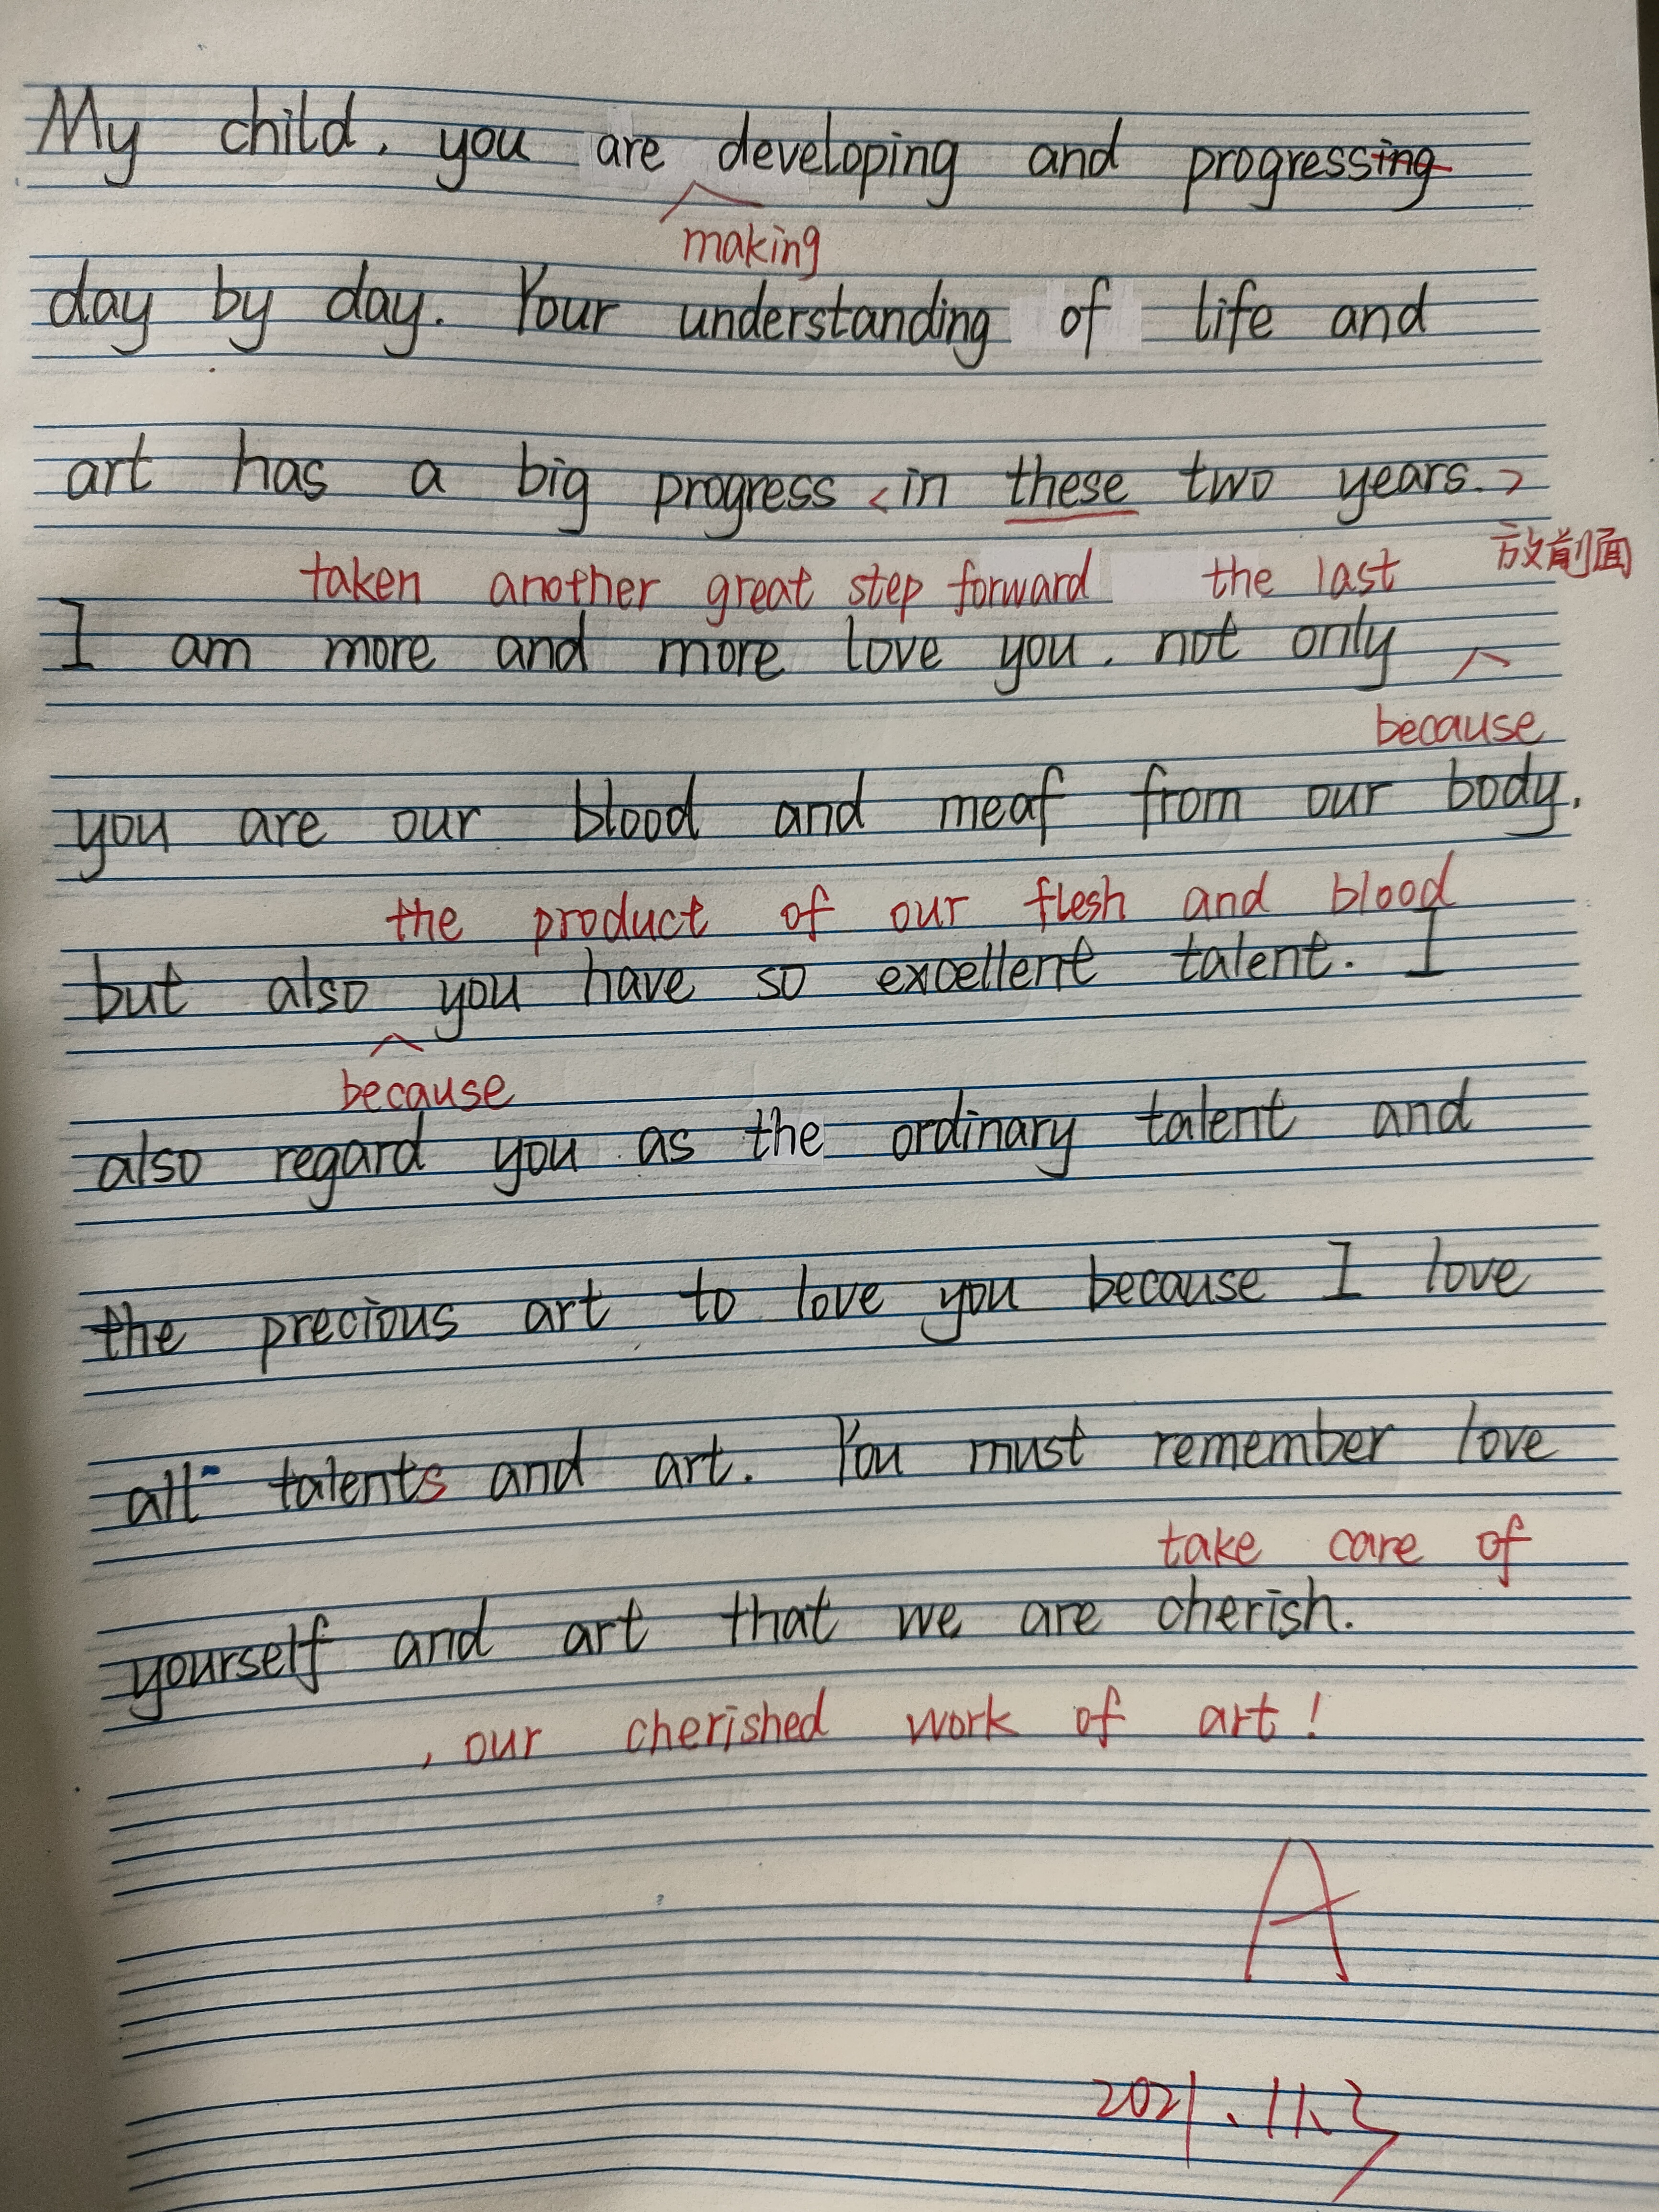 My child, you are developing and progressing
making
day by day. Your understanding of life and
art has a big progress < in these two years. >
taken another great step forward the last 放前面
I am more and more love you. not only
because
you are our blood and meaf from our body.
the product of our flesh and blood
but also you have so excellent talent. I
because
also regard you as the ordinary talent and
the precious art to love you because I love
all talents and art. You must remember love
take care of
yourself and art that we are cherish.
, our cherished work of art!
A
2021.11.3